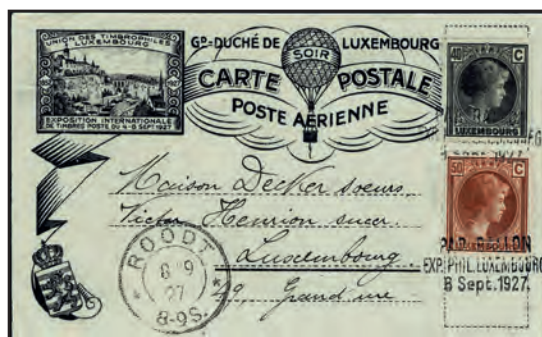 UNION DES TIMBROPHILES
LUXEMBOURG
1927
EXPOSITION INTERNATIONALE
DE TIMBRES POSTE DU 4-8 SEPT. 1927
GD-DUCHÉ DE LUXEMBOURG
SOIR
CARTE POSTALE
POSTE AÉRIENNE
40 C
LUXEMBOURG
Sept. 1927
50 C
LUXEMBOURG
PAR BALLON
EXP. PHIL. LUXEMBOURG
8 Sept. 1927.
Maison Decker soeurs
Victor Henrion succr.
Luxembourg.
49, Grand'rue
ROODT
8 9
27
8-9S.